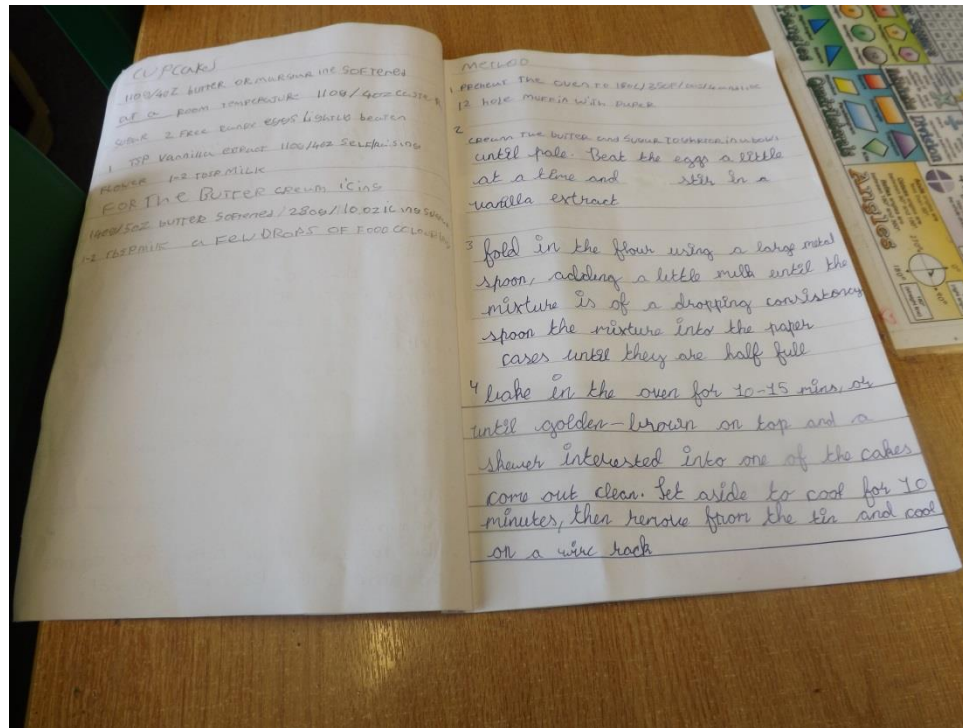 CUPCakes
110g/4oz butter OR margarine SOFTENED
at a room temperature 110g/4oz caster
sugar 2 Free range eggs lightly beaten
1 TSP Vannilla extract 110g/4oz selfraising
Flower 1-2 TBSP MILK
FOR The BUTTER cream icing
140g/5oz butter softened/280g/10oz icing sugar
1-2 TBSP milk a FEW DROPS OF FOOD COLOURING
METHOD
1 Preheat The oven to
12 hole muffin with paper
2
cream The butter and sugar Together in a bowl
until pale. Beat the eggs a little
at a time and stir in a
vanilla extract
3 fold in the flour using a large metal
spoon, adding a little milk until the
mixture is of a dropping consistency
spoon the mixture into the paper
cases until they are half full
4 bake in the oven for 10-15 mins, or
until golden-brown on top and a
skewer interested into one of the cakes
come out clean. Set aside to cool for 10
minutes, then remove from the tin and cool
on a wire rack
Triangles
Quadrilaterals
Division
Angles